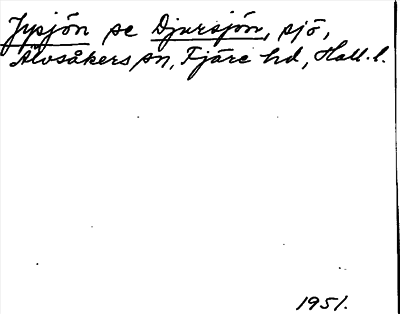 Jysjön se Djursjön, sjö,
Älvsåkers sn, Fjäre hd, Hall. l.
1951.